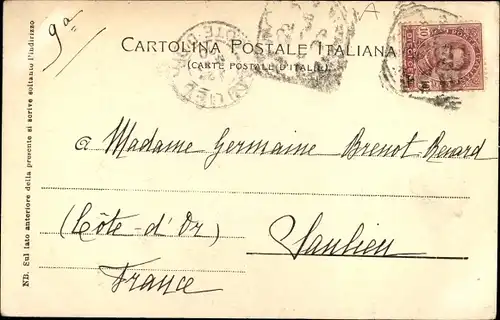 9a
CARTOLINA POSTALE ITALIANA
(CARTE POSTALE D'ITALIE)
NB. Sul lato anteriore della presente si scrive soltanto l'indirizzo
a Madame Germaine Brenot Renard
(Côte-d'Or) Saulieu
France